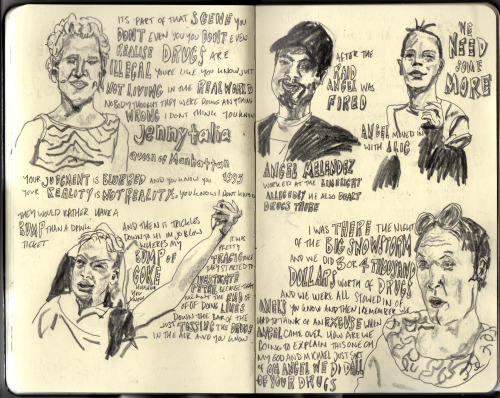 ITS PART OF THAT SCENE YOU
DON'T EVEN YOU YOU DON'T EVEN
REALISE DRUGS ARE
ILLEGAL YOURE LIKE YOU KNOW JUST
NOT LIVING IN THE REAL WORLD
NOBODY THOUGHT THEY WERE DOING ANYTHING
WRONG I DONT THINK YOU KNOW
Jennytalia
Queen of Manhattan
1995
YOUR JUDGMENT IS BLURRED AND YOU KNOW YOU
YOUR REALITY IS NOT REALITY. YOU KNOW I DONT KNOW
THEY WOULD RATHER HAVE A
BUMP THAN A DRINK
TICKET
AND THEN IT TRICKLES
DOWN TO HI IM JO BLOW
WHERES MY
BUMP OF
COKE
YOU
KNOW
IT WAS
PRETTY
TRAGIC ONCE
THEY STARTED TO
INVESTIGATE
PETER BECAUSE THAT
MEANT THE END OF
OF OF DOING LINES
DOWN THE BAR OF THE
JUST TOSSING THE DRUGS
IN THE AIR AND YOU KNOW
AFTER THE
RAID
ANGEL WAS
FIRED
ANGEL MELENDEZ
WORKED AT THE LIMELIGHT
ALLEGEDLY HE ALSO DEALT
DRUGS THERE
WE
NEED
SOME
MORE
ANGEL MOVED IN
WITH ALIG
I WAS THERE THE NIGHT
OF THE BIG SNOWSTORM
AND WE DID 3 OR 4 THOUSAND
DOLLARS WORTH OF DRUGS
AND WE WERE ALL STOWED IN OF
ANGELS YOU KNOW AND THEN I REMEMBER WE
HAD TO THINK OF AN EXCUSE WHEN
ANGEL CAME OVER HOW ARE WE
GOING TO EXPLAIN THIS ONE OH
MY GOD AND MICHAEL JUST SORT
OF OH ANGEL WE DID ALL
OF YOUR DRUGS